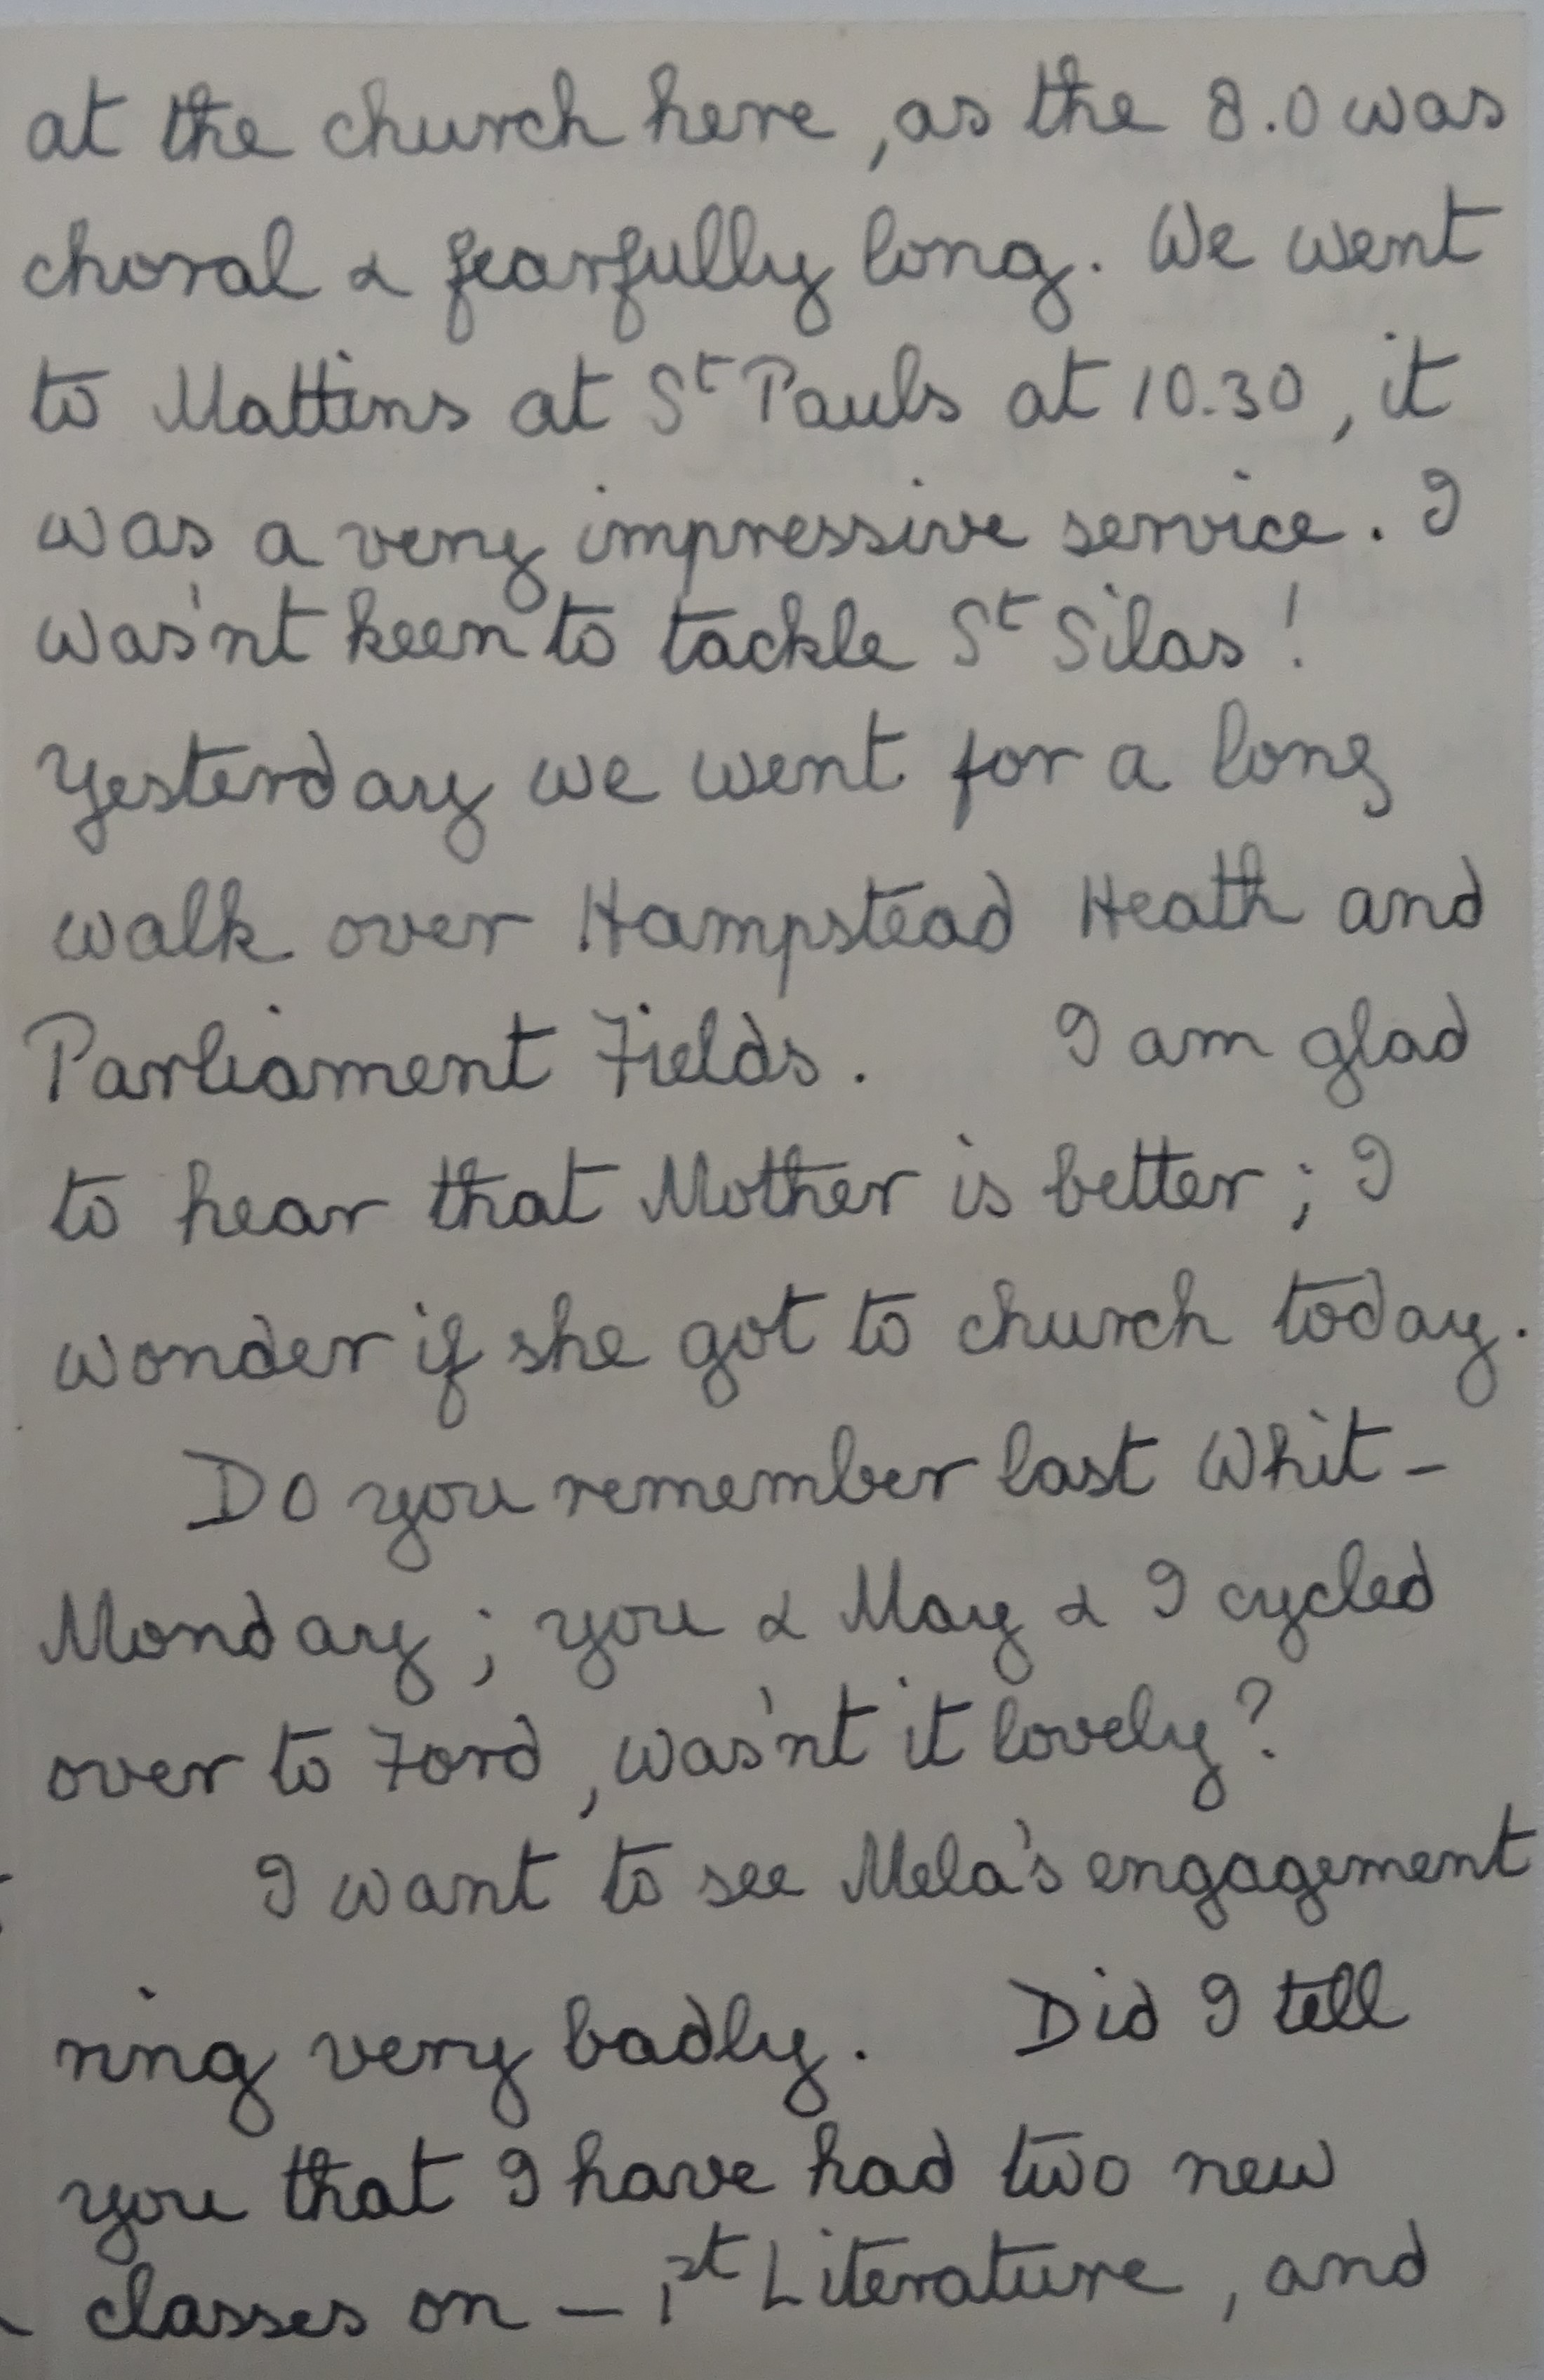 at the church here, as the 8.0 was
choral & fearfully long. We went
to Mattins at St Pauls at 10.30, it
was a very impressive service. I
was'nt keen to tackle St Silas!
Yesterday we went for a long
walk over Hampstead Heath and
Parliament Fields. I am glad
to hear that Mother is better; I
wonder if she got to church today.
Do you remember last Whit-
Monday; you & May & I cycled
over to Ford, was'nt it lovely?
I want to see Mela's engagement
ring very badly. Did I tell
you that I have had two new
classes on – 1st Literature, and